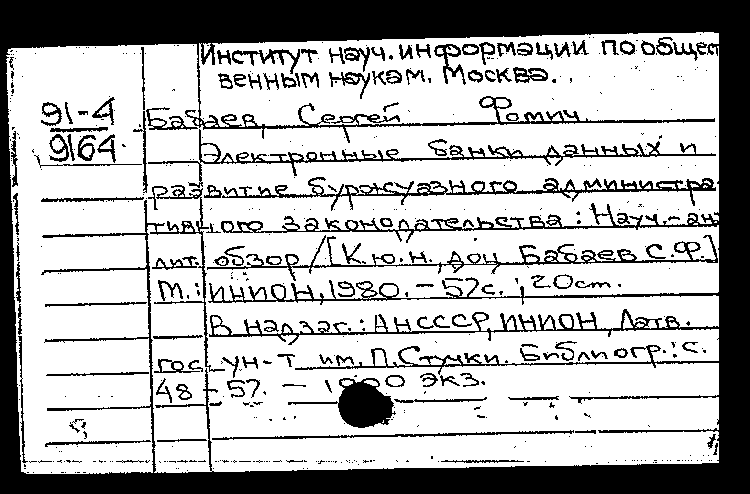 Институт науч. информации по общест
венным наукам. Москва.
91-4
9164
Бабаев, Сергей Фомич
Электронные банки данных и
развитие буржуазного администра
тивного законодательства: Науч.-ана
лит. обзор / [К.ю.н., доц. Бабаев С.Ф.]
М.: ИНИОН, 1980. - 57с.; 20см.
В надзаг.: АН СССР, ИНИОН, Латв.
гос. ун-т им. П. Стучки. Библиогр.: с.
48-57. - 1000 экз.